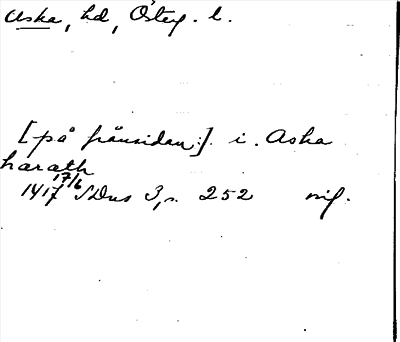 Aska, hd, Österg. l.
[på frånsidan:]. i. Aska
harath
1417 17/6 SDns 3, s. 252 nyl.